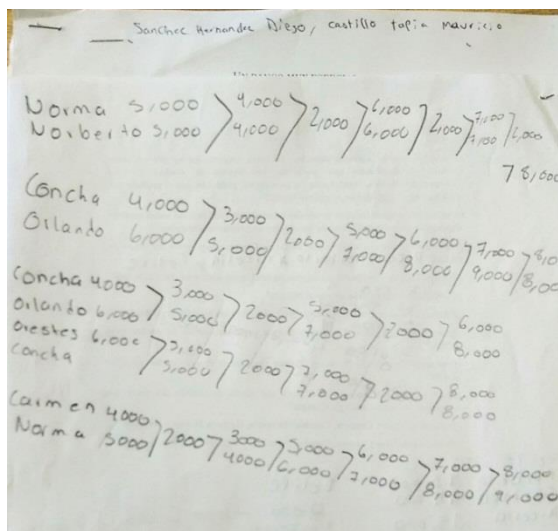 Sanchez Hernandez Diego, castillo tapia mauricio
Norma 5,000 > 4,000 > 2,000 > 6,000 > 2,000 > 7,100 > 2,000
Norberto 5,000 4,000 6,000 7,100
7 8,000
Concha 4,000 > 3,000 > 2000 > 5,000 > 6,000 > 7,000 > 8,0
Orlando 6,000 5,000 7,000 8,000 9,000 8,0
Concha 4000 > 3,000 > 2000 > 5,000 > 2000 > 6,000
Orlando 6,000 5,000 7,000 8,000
Orestes 6,000 > 5,000 > 2000 > 7,000 > 2000 > 8,000
Concha 5,000 7,000 8,000
Carmen 4000 > 2000 > 3000 > 5,000 > 6,000 > 7,000 > 8,000
Norma 5000 4000 6,000 7,000 8,000 9,000